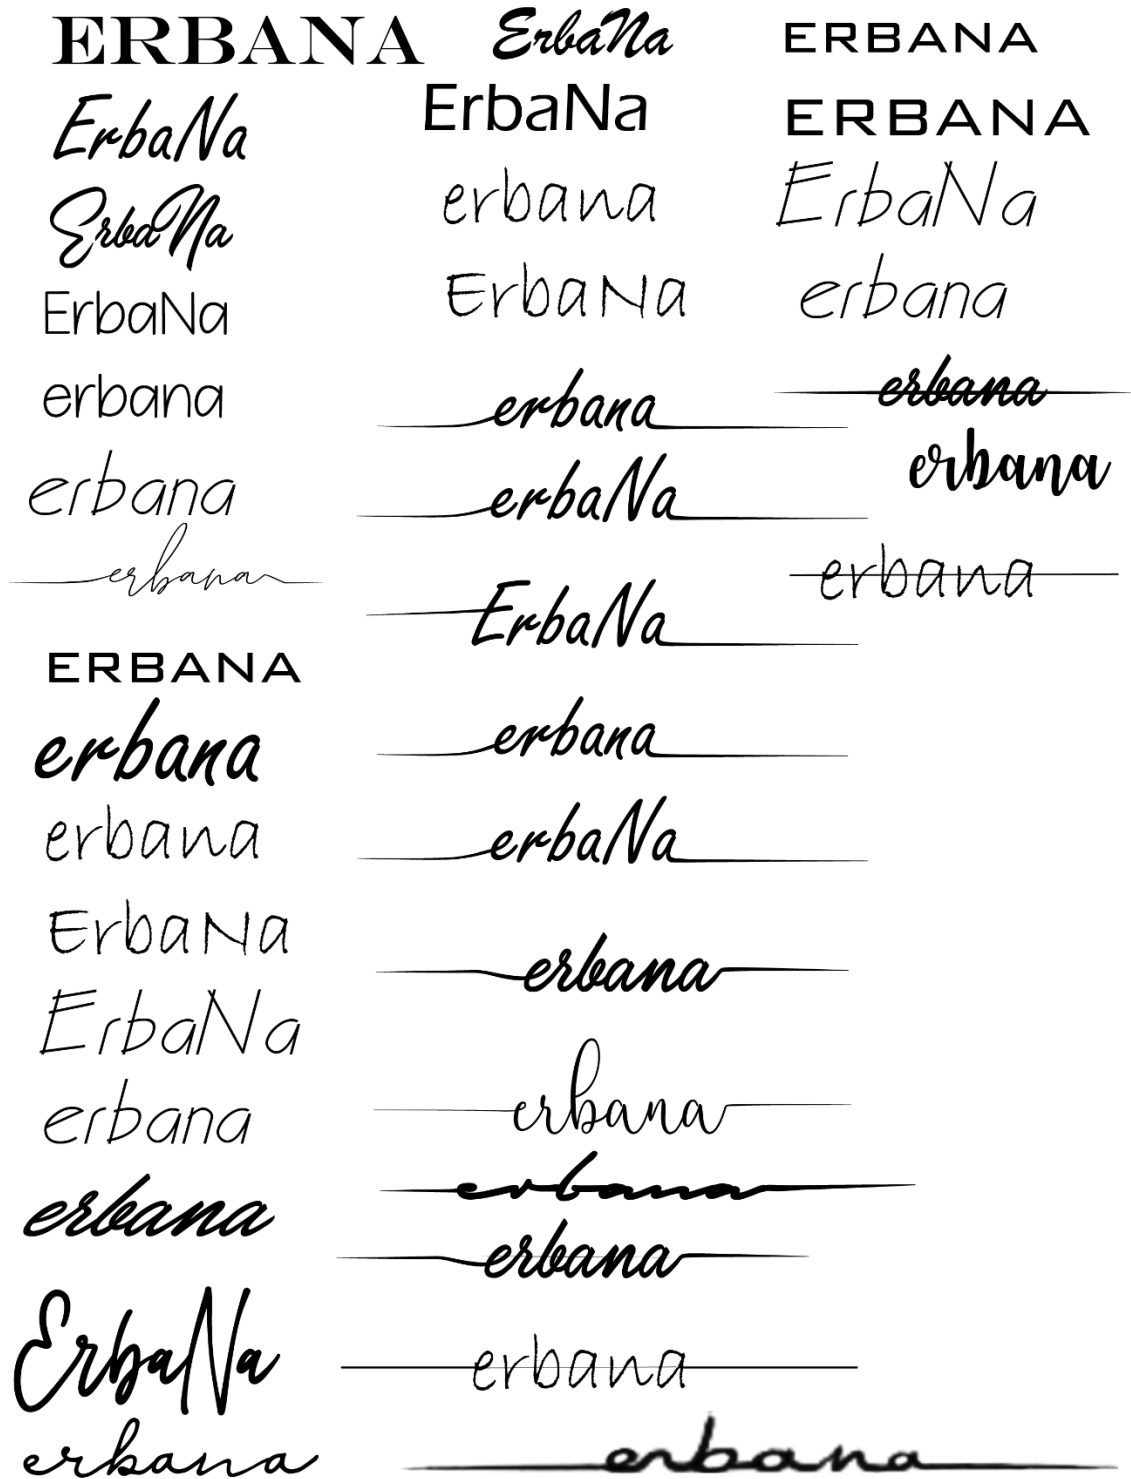 ERBANA
ErbaNa
ErbaNa
ErbaNa
erbana
erbana
erbana
ERBANA
erbana
erbana
ErbaNa
ErbaNa
erbana
erbana
ErbaNa
erbana
ErbaNa
ErbaNa
erbana
ErbaNa
erbana
erbaNa
ErbaNa
erbana
erbaNa
erbana
erbana
erbana
erbana
erbana
erbana
ERBANA
ERBANA
ErbaNa
erbana
erbana
erbana
erbana